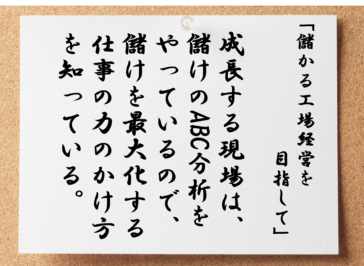 「儲かる工場経営を
目指して」
成長する現場は、
儲けのABC分析を
やっているので、
儲けを最大化する
仕事の力のかけ方
を知っている。